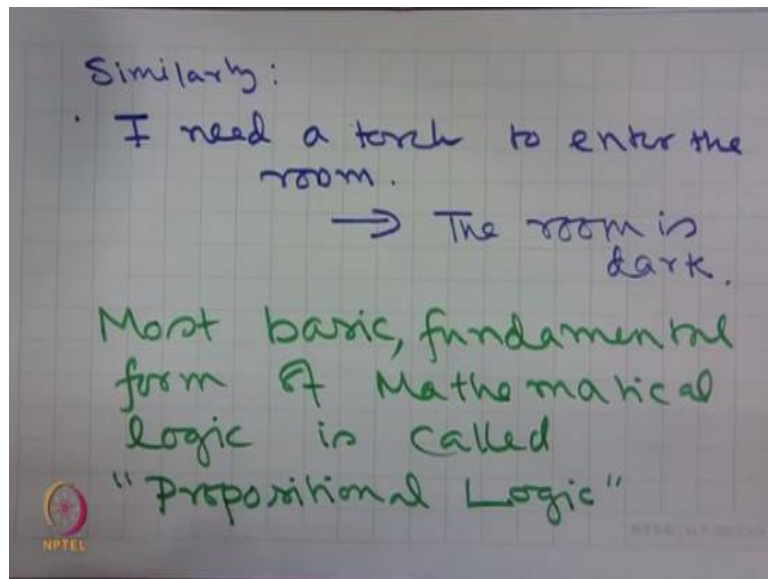 Similarly:
I need a torch to enter the
room.
→ The room is
dark.
Most basic, fundamental
form of Mathematical
logic is called
"Propositional Logic"
NPTEL